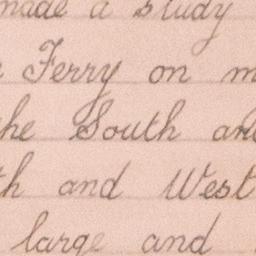 made a study
Ferry on m
the South and
th and West
large and